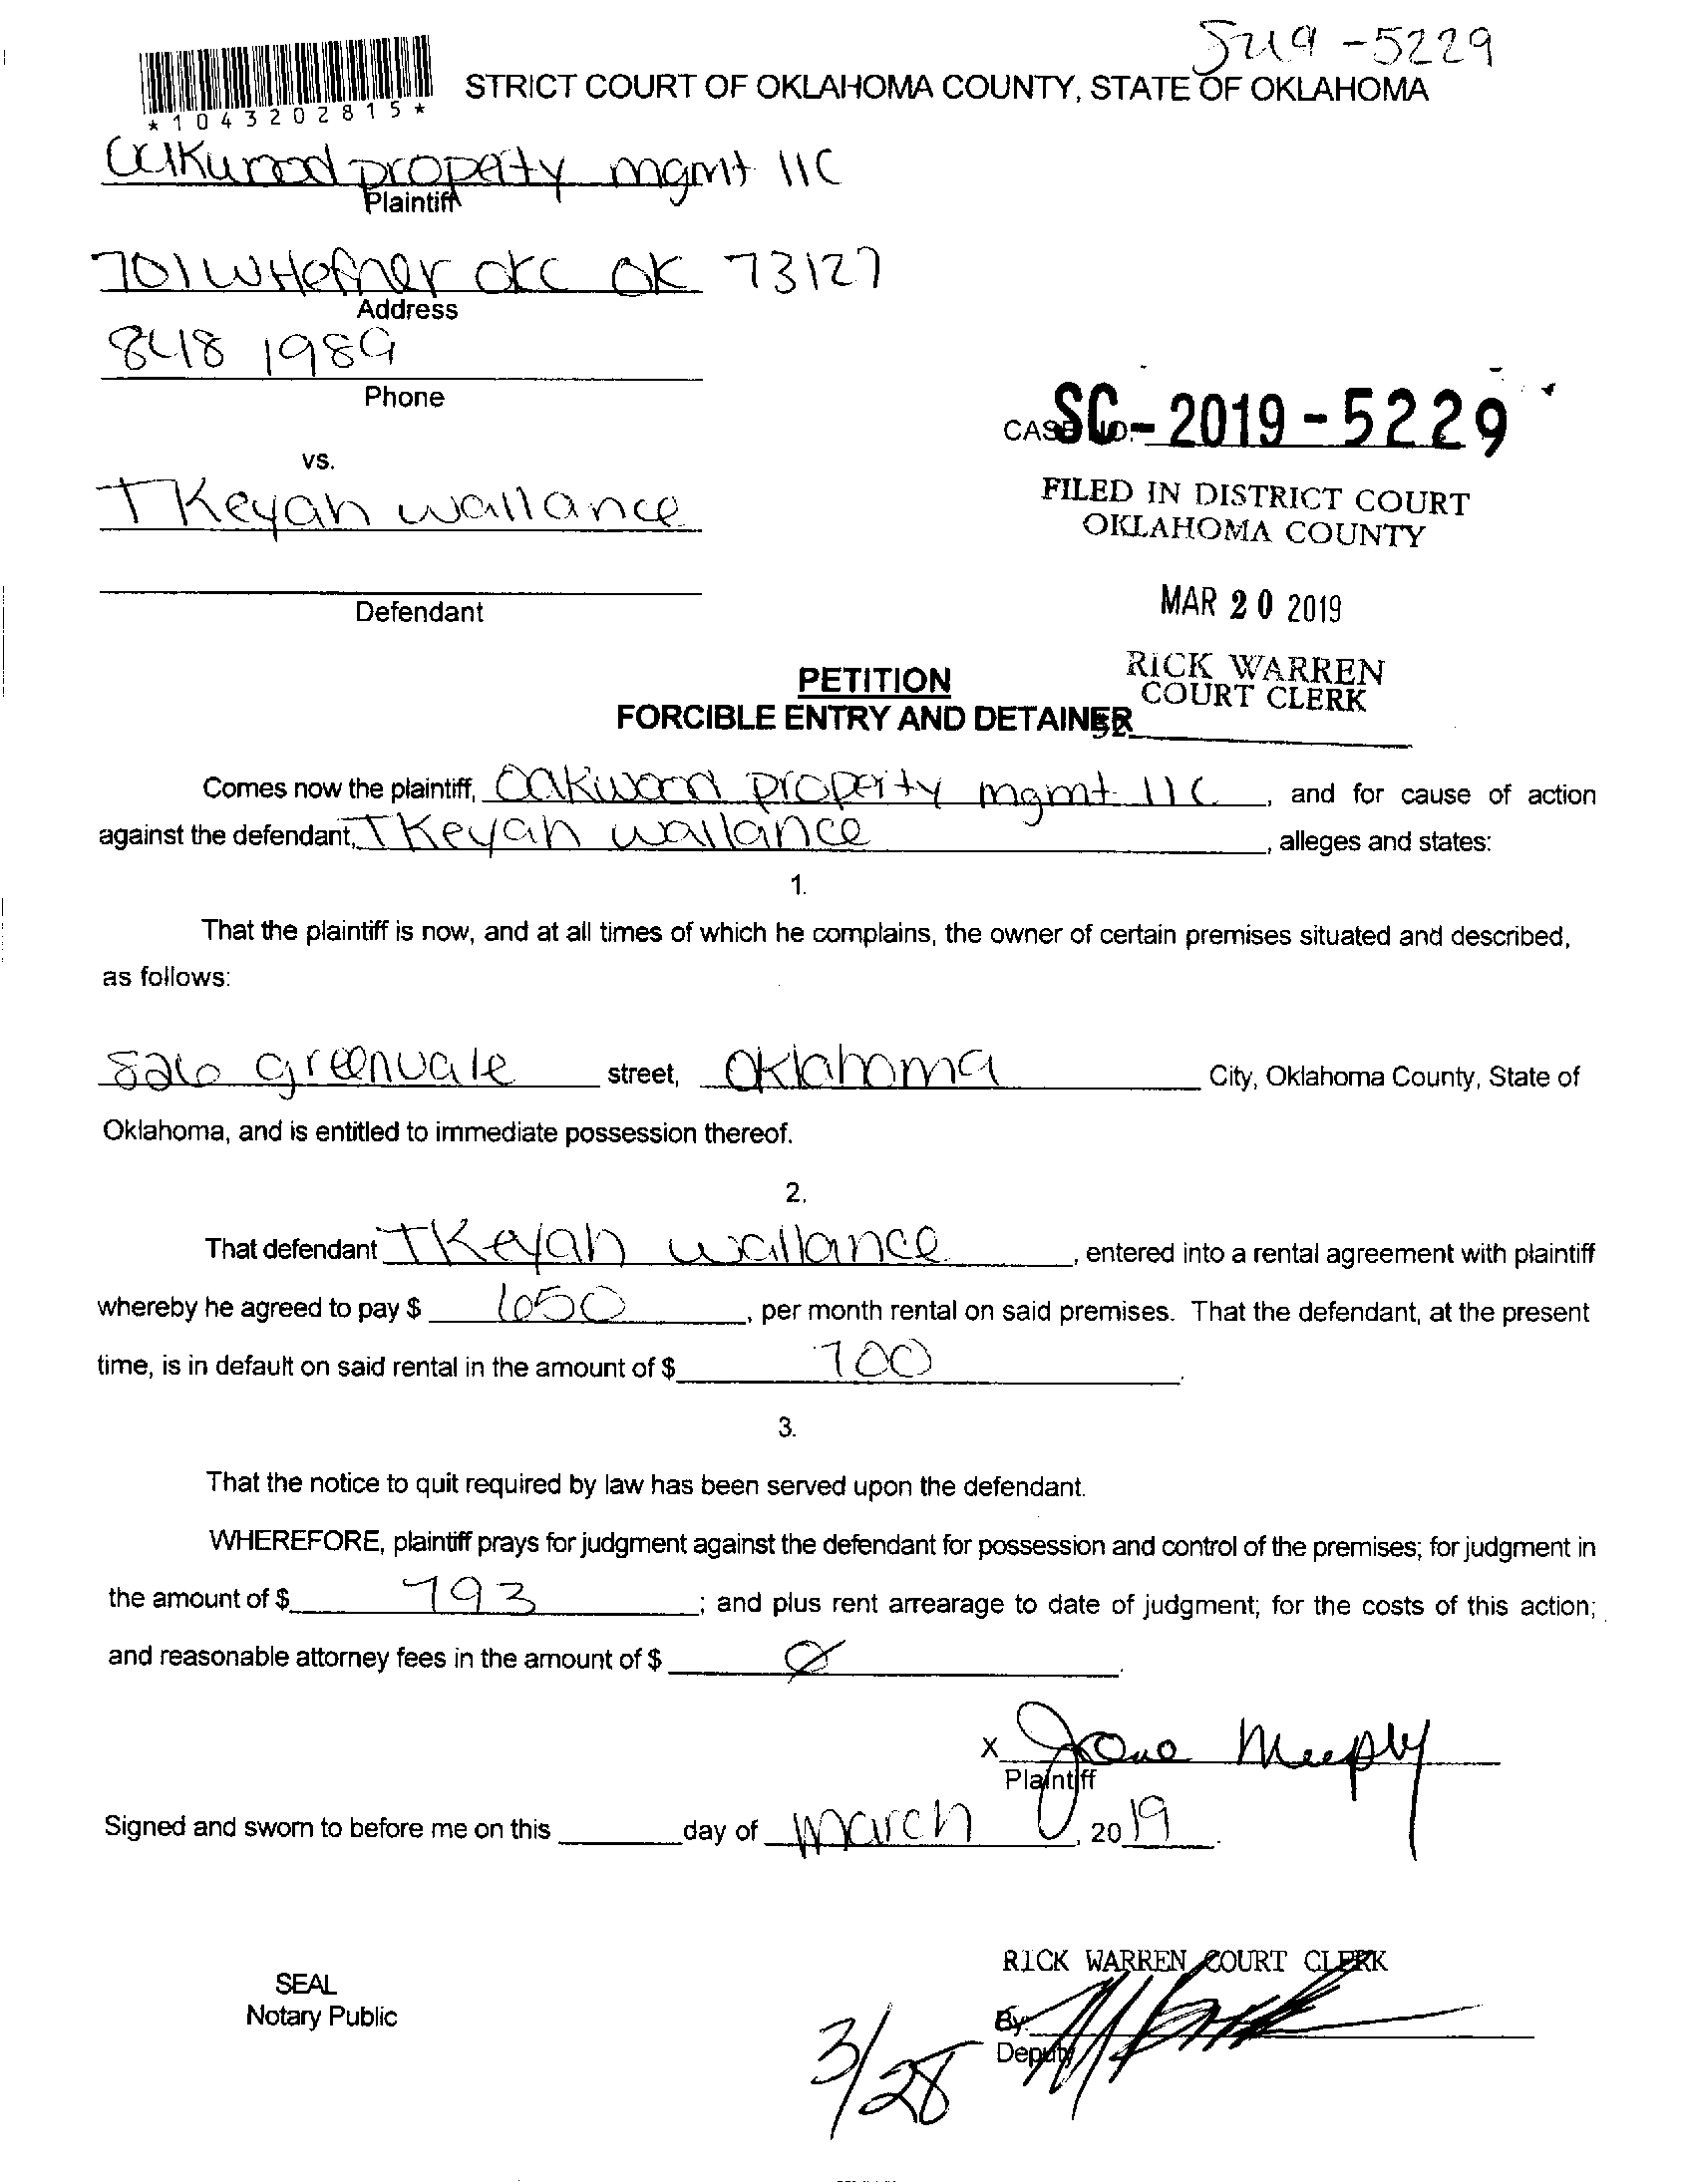 5219-5229
*1043202815*
STRICT COURT OF OKLAHOMA COUNTY, STATE OF OKLAHOMA
Oakwood property mgmt llC
Plaintiff
701 W Hefner OKC OK 73127
Address
848 1989
Phone
CASE NO. SC-2019-5229
vs.
TKeyah wallance
FILED IN DISTRICT COURT
OKLAHOMA COUNTY
Defendant
MAR 20 2019
RICK WARREN
COURT CLERK
PETITION
FORCIBLE ENTRY AND DETAINER
Comes now the plaintiff, Oakwood property mgmt llC, and for cause of action
against the defendant, TKeyah wallance, alleges and states:
1.
That the plaintiff is now, and at all times of which he complains, the owner of certain premises situated and described,
as follows:
8206 greenvale street, Oklahoma City, Oklahoma County, State of
Oklahoma, and is entitled to immediate possession thereof.
2.
That defendant TKeyah wallance, entered into a rental agreement with plaintiff
whereby he agreed to pay $ 650, per month rental on said premises. That the defendant, at the present
time, is in default on said rental in the amount of $ 700.
3.
That the notice to quit required by law has been served upon the defendant.
WHEREFORE, plaintiff prays for judgment against the defendant for possession and control of the premises; for judgment in
the amount of $ 793; and plus rent arrearage to date of judgment; for the costs of this action;
and reasonable attorney fees in the amount of $ Ø.
X
Plaintiff
Signed and sworn to before me on this day of March, 2019.
RICK WARREN COURT CLERK
SEAL
Notary Public
By:
Deputy
3/28